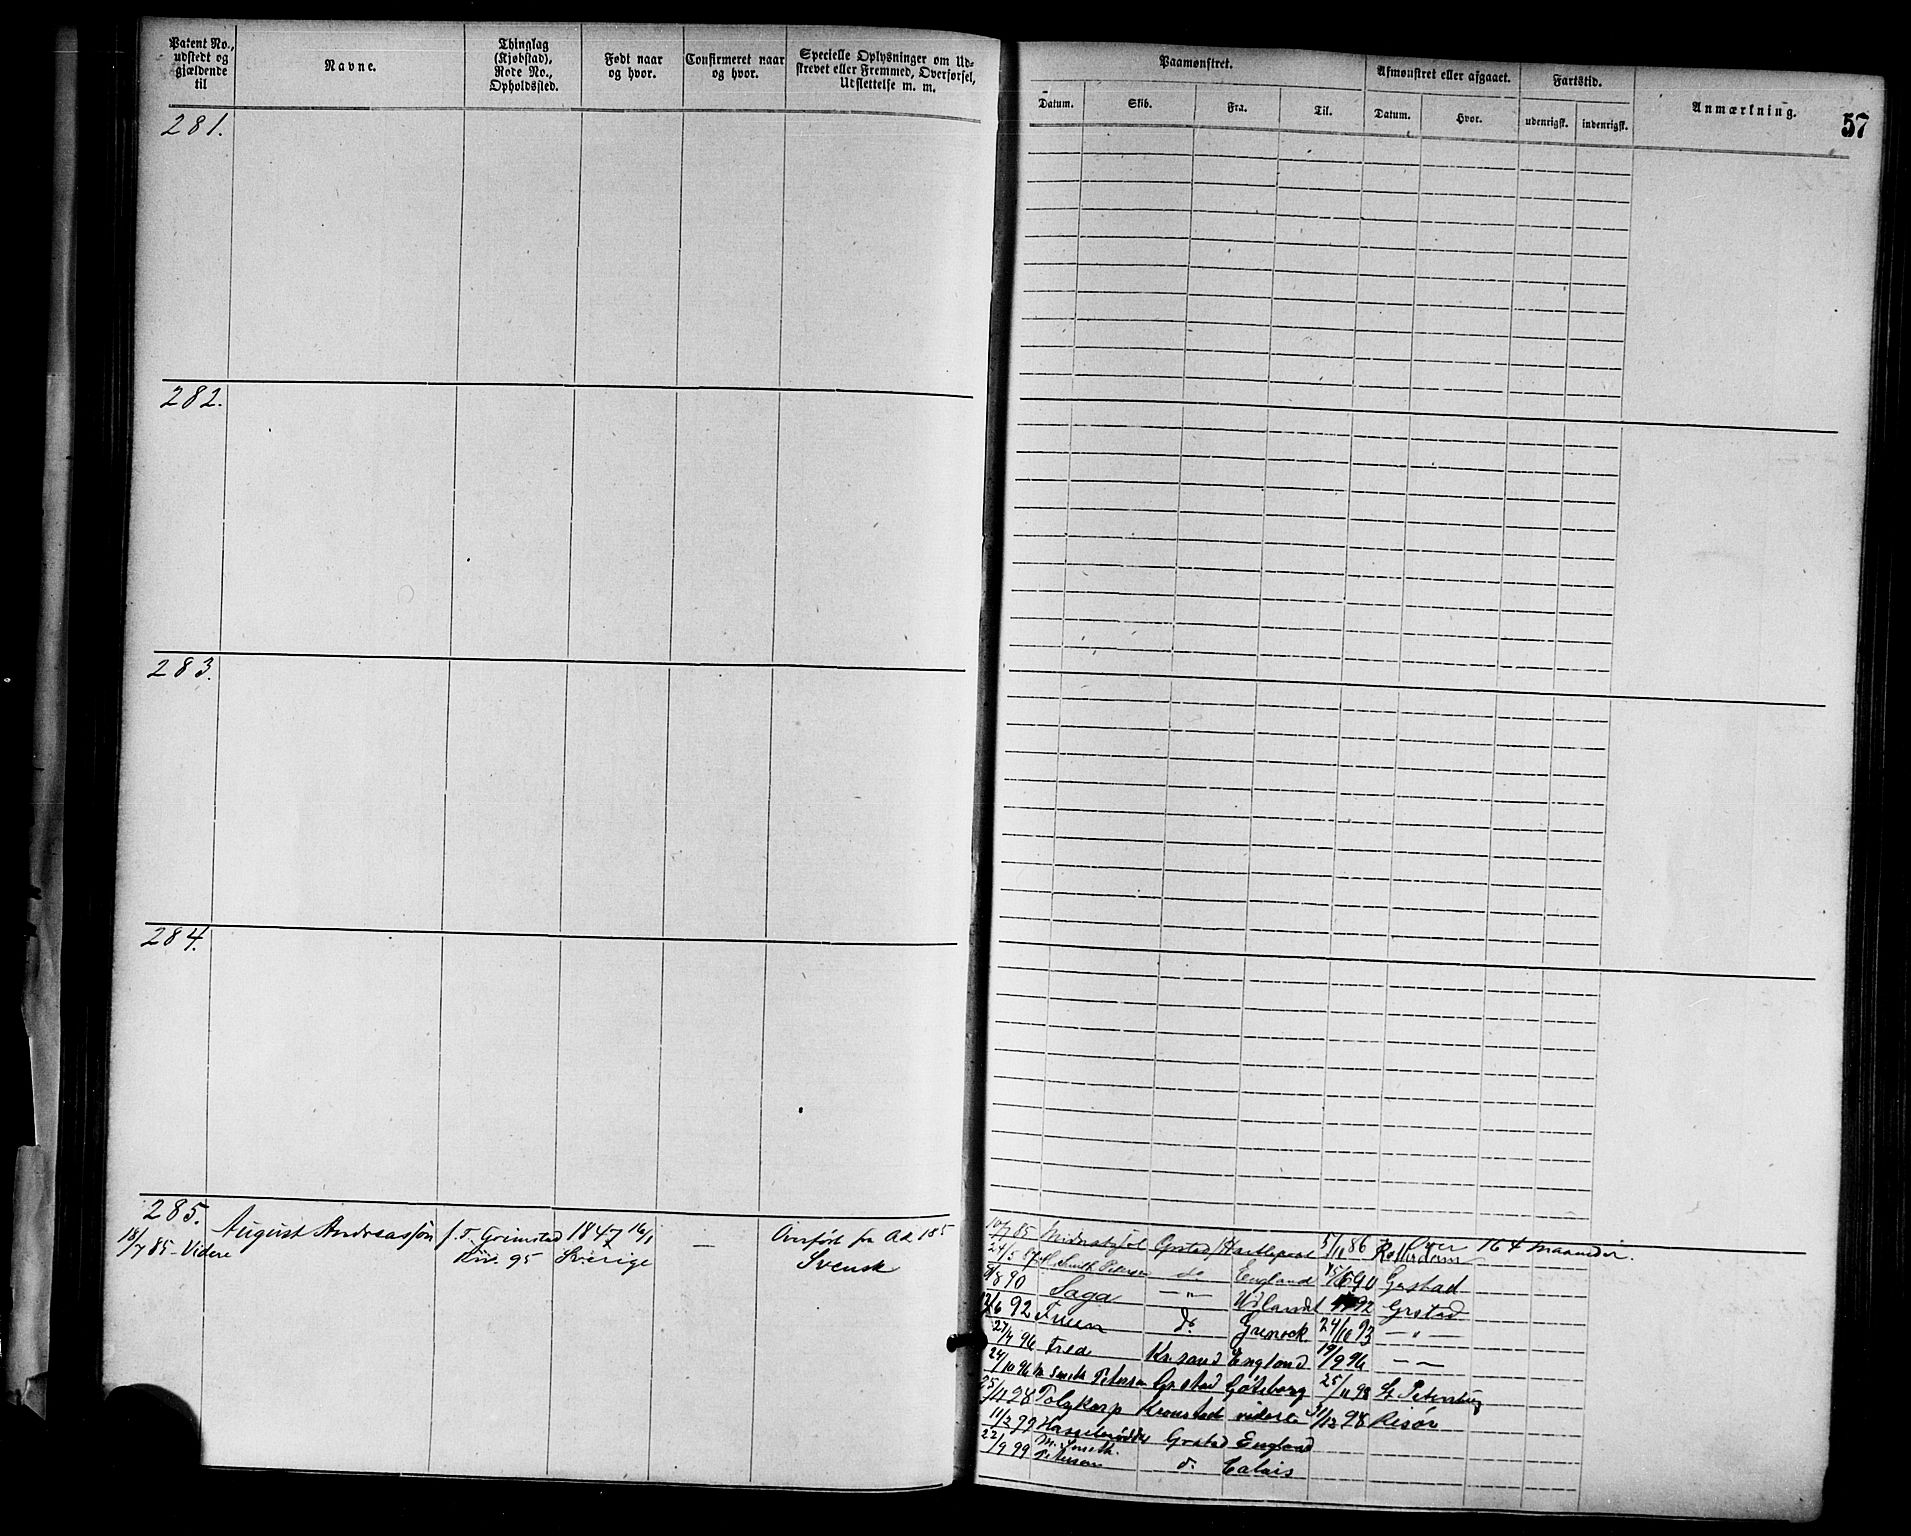 Patent No., udstedt og gjældende til
Navne.
Thinglag (Kjøbstad), Rode No., Opholdssted.
Født naar og hvor.
Confirmeret naar og hvor.
Specielle Oplysninger om Udskrevet eller Fremmed, Overførsel, Udslettelse m. m.
Paamønstret.
Afmønstret eller afgaaet.
Fartstid.
Anmærkning.
57
Datum.
Skib.
Fra.
Til.
Datum.
Hvor.
udenrigsk.
indenrigsk.
281.
282.
283.
284.
285.
18/7 85 - Videre
August Andreassøn
f. T. Grimstad
95
1847 16/1
Sverige
—
Overført fra A.d. 185
Svensk
10/7 85 Grstad Hartlepool 5/11 86 Rotterdam Over 164 Maaneder.
24/5 Smith Petersen do England 15/6 90 Grstad
8/8 90 Saga —"— Udlandet 92 Grstad
12/6 92 Fuen do Grenock 24/10 93 —"—
27/7 96 Fred Kr.sand England 19/9 96 — —
24/10 96 M Smith Petersen Grstad Göteborg 25/11 98 St Petersburg
25/11 98 Polykarp Kronstad videre 31/12 98 Risør
11/2 99 Hasselnødden Grstad England
22/9 99 M. Smith Petersen do Calais